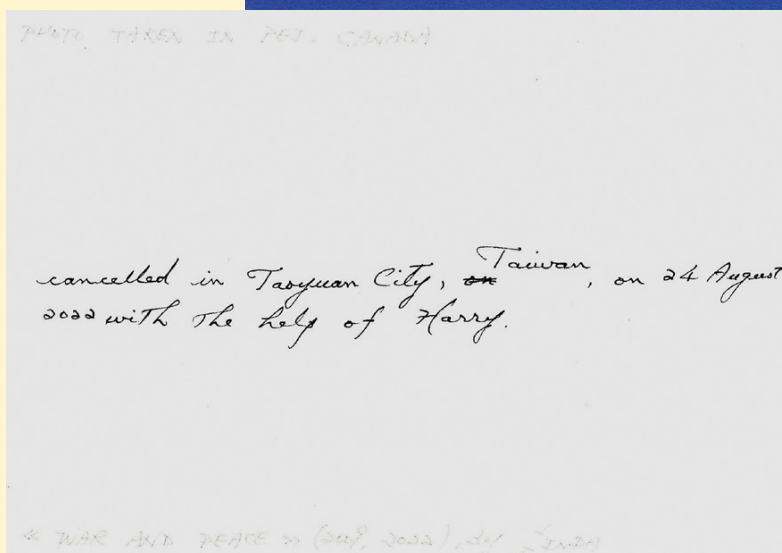 PHOTO TAKEN IN PEI. CANADA
cancelled in Taoyuan City, Taiwan, on 24 August
2022 with the help of Harry.
« WAR AND PEACE » (2019, 2022), by